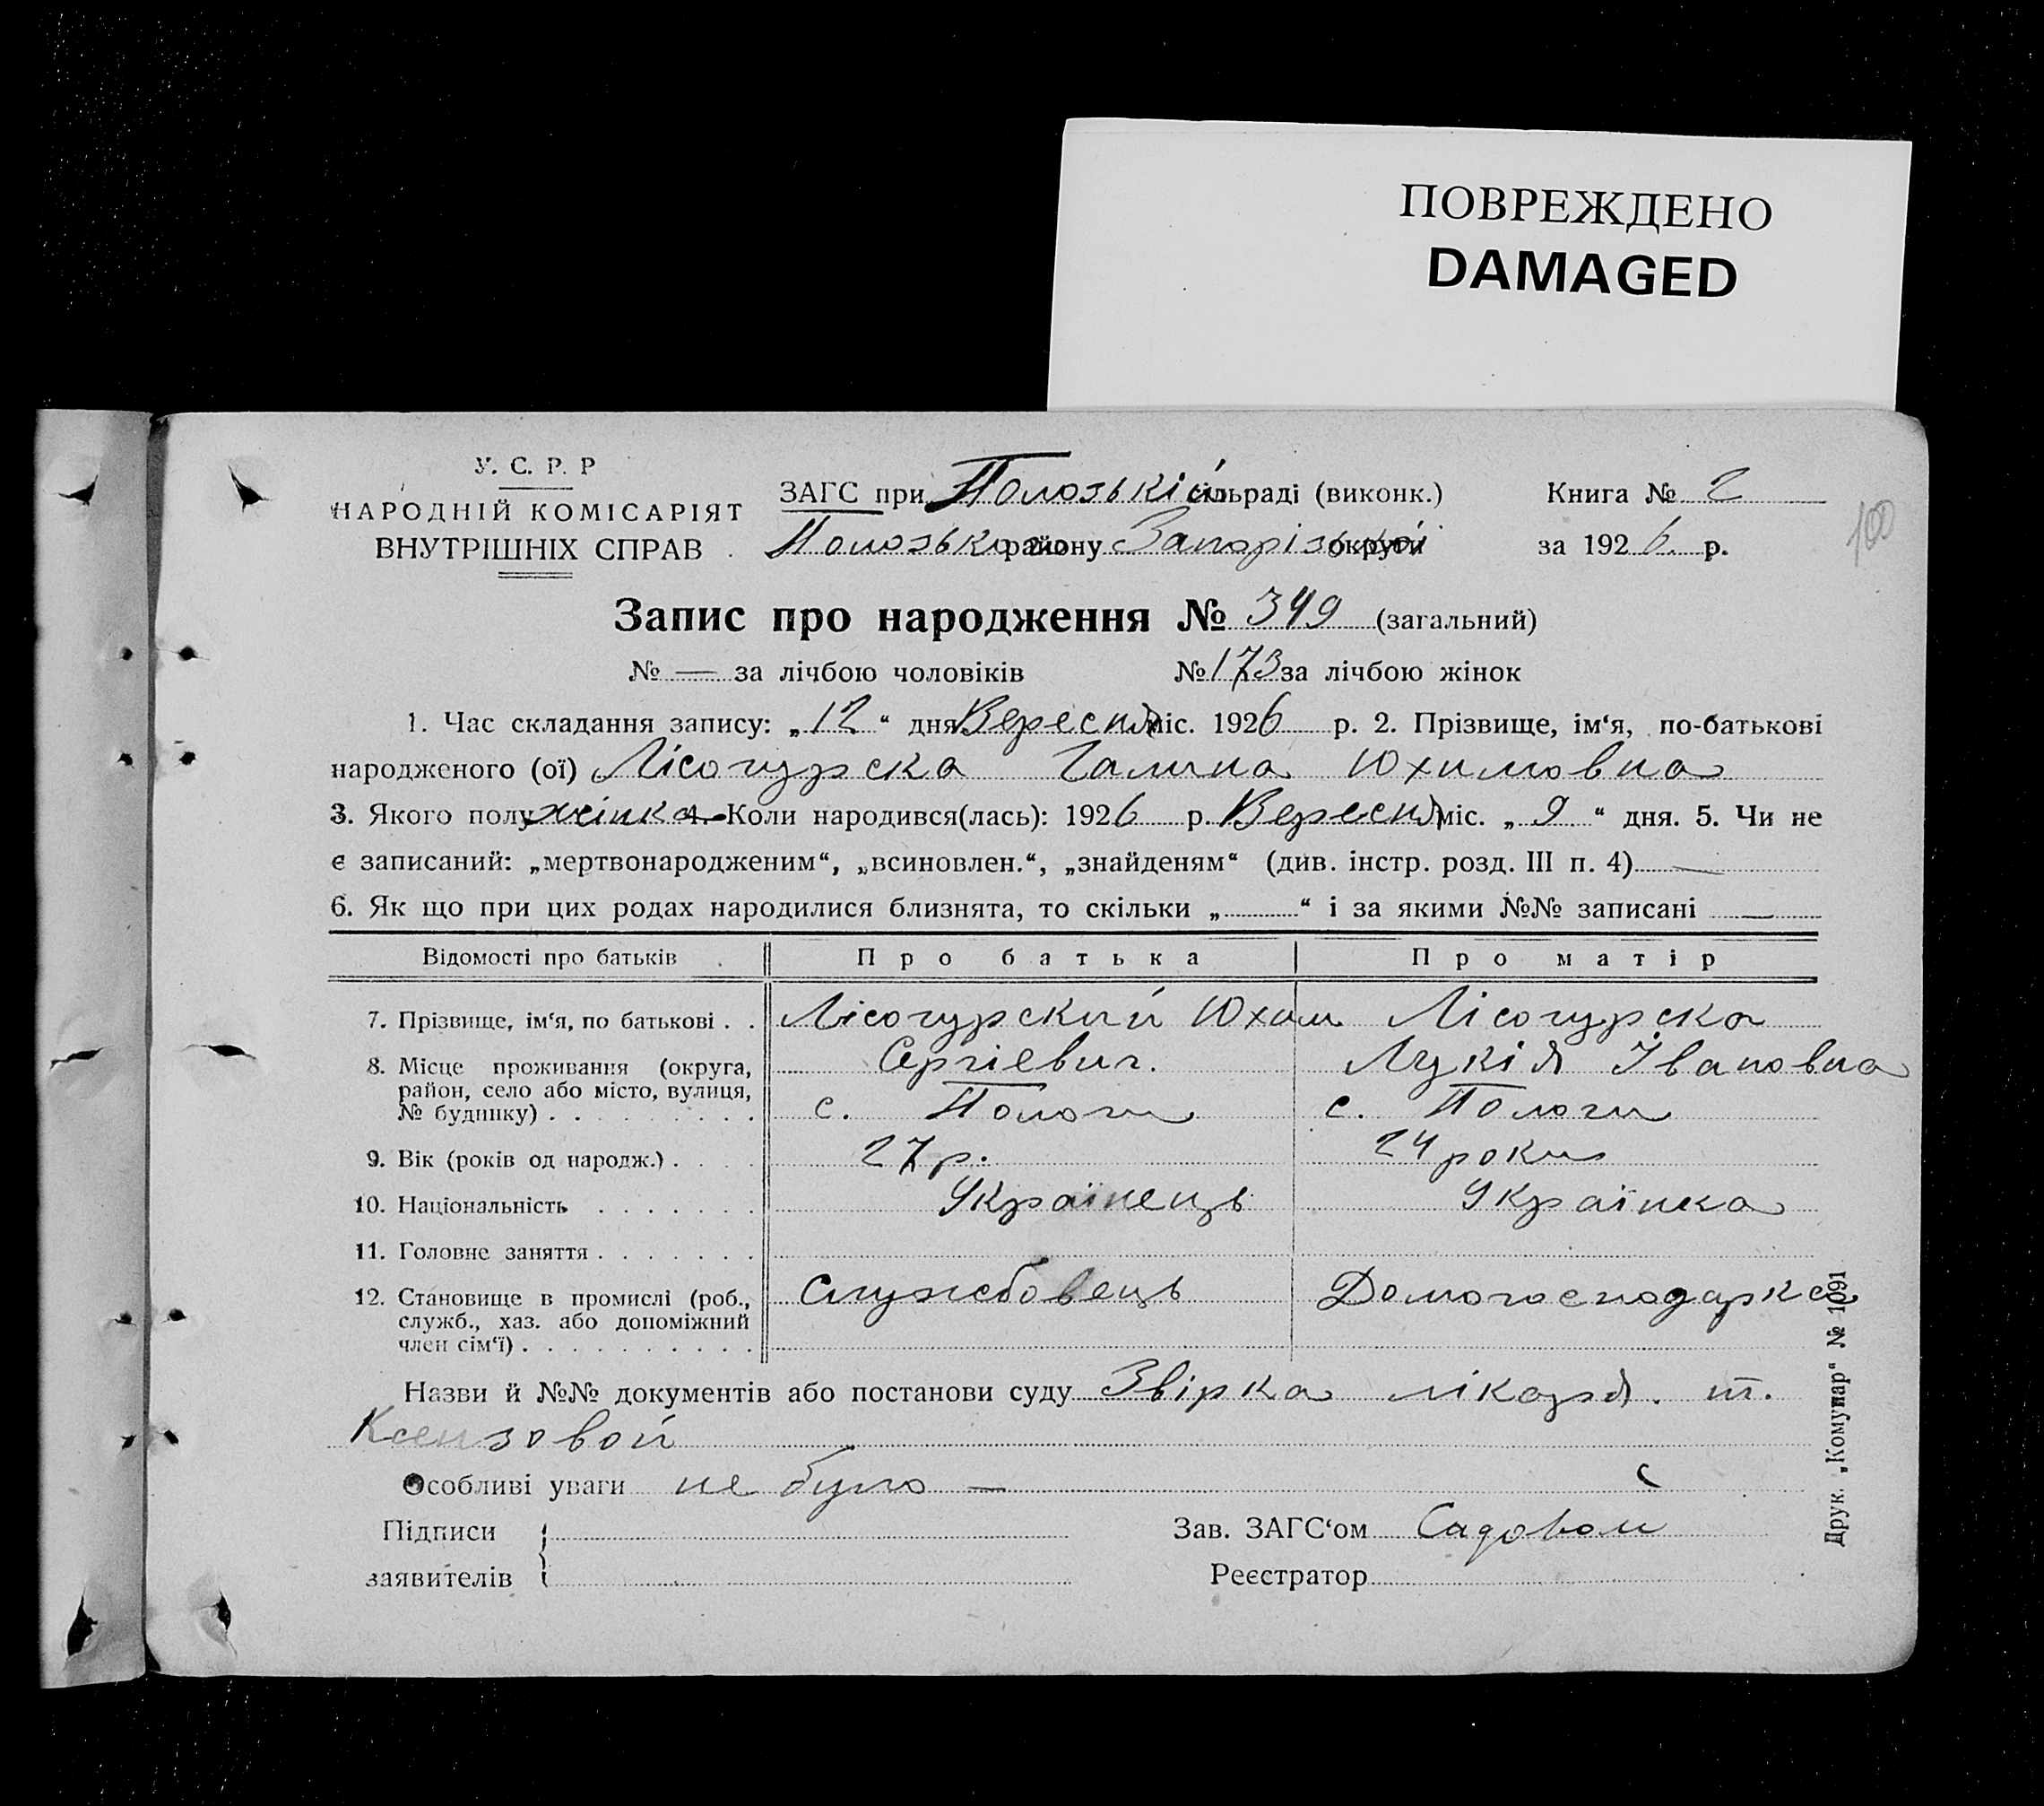 ПОВРЕЖДЕНО
DAMAGED
У. С. Р. Р
НАРОДНІЙ КОМІСАРІЯТ
ВНУТРІШНІХ СПРАВ
ЗАГС при Пологькій сільраді (виконк.)
Пологького району Запорізької округи
Книга № 2
за 1926 р.
100
Запис про народження № 349 (загальний)
№ — за лічбою чоловіків № 173 за лічбою жінок
1. Час складання запису: „12“ дня Вересня міс. 1926 р. 2. Прізвище, ім‘я, по-батькові
народженого (ої) Лісогурска Галина Юхимовна
3. Якого полу жінка 4. Коли народився(лась): 1926 р. Вересня міс. „9“ дня. 5. Чи не
є записаний: „мертвонародженим“, „всиновлен.“, „знайденям“ (див. інстр. розд. III п. 4) —
6. Як що при цих родах народилися близнята, то скільки „ “ і за якими №№ записані —
Відомості про батьків Про батька Про матір
7. Прізвище, ім‘я, по батькові . . Лісогурский Юхим Лісогурска
Сергіевич. Лукія Івановна
8. Місце проживання (округа,
район, село або місто, вулиця,
№ будинку) . . . . . . . . . с. Пологи с. Пологи
9. Вік (років од народж.) . . . . 27 р. 24 роки
10. Національність . . . . . . . Українець Українка
11. Головне заняття . . . . . . .
12. Становище в промислі (роб.,
служб., хаз. або допоміжний
член сім‘ї) . . . . . . . . . . Службовець Домогосподарка
Назви й №№ документів або постанови суду Звірка лікаря. т.
Ксензовой
Особливі уваги не було —
Підписи
заявителів
Зав. ЗАГС‘ом Садовой
Реєстратор
Друк. „Комунар“ № 1091